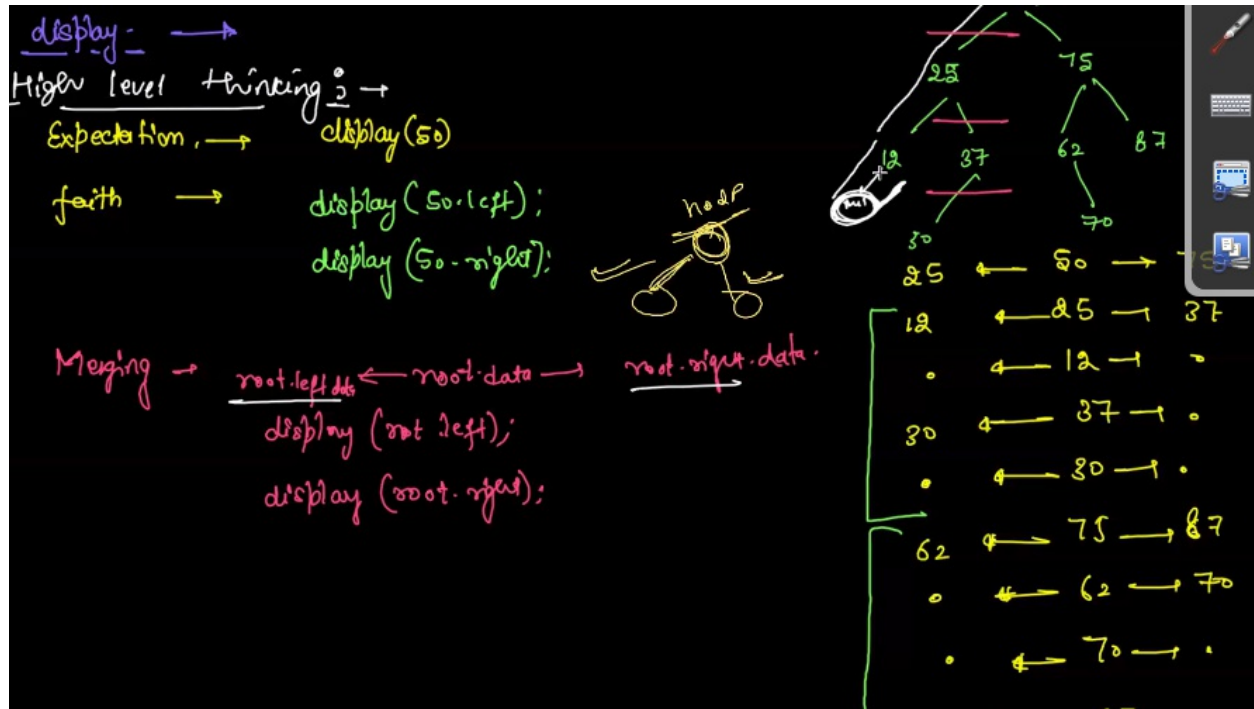 display -
High level thinking :
Expectation. → display(50)
faith → display(50.left);
display(50.right);
Merging → root.left.data ← root.data → root.right.data.
display (root.left);
display (root.right);
node
25 75
12 37 62 87
null
30 70
25 ← 50 → 75
12 ← 25 → 37
. ← 12 → .
30 ← 37 → .
. ← 30 → .
62 ← 75 → 87
. ← 62 → 70
. ← 70 → .